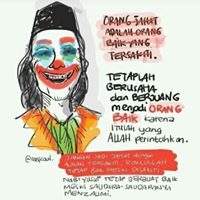 ORANG JAHAT
ADALAH ORANG
BAIK YANG
TERSAKITI.
TETAPLAH
BERUSAHA
dan BERJUANG
menjadi ORANG
BAIK karena
ITULAH yang
ALLAH perintahkan.
JANGAN JADI JAHAT dengan
ALASAN TERSAKITI,
TETAP BAIK MESKI DISAKITI
NABI YUSUF TETAP BERBUAT BAIK
MESKI SAUDARA-SAUDARANYA
MENZALIMI.